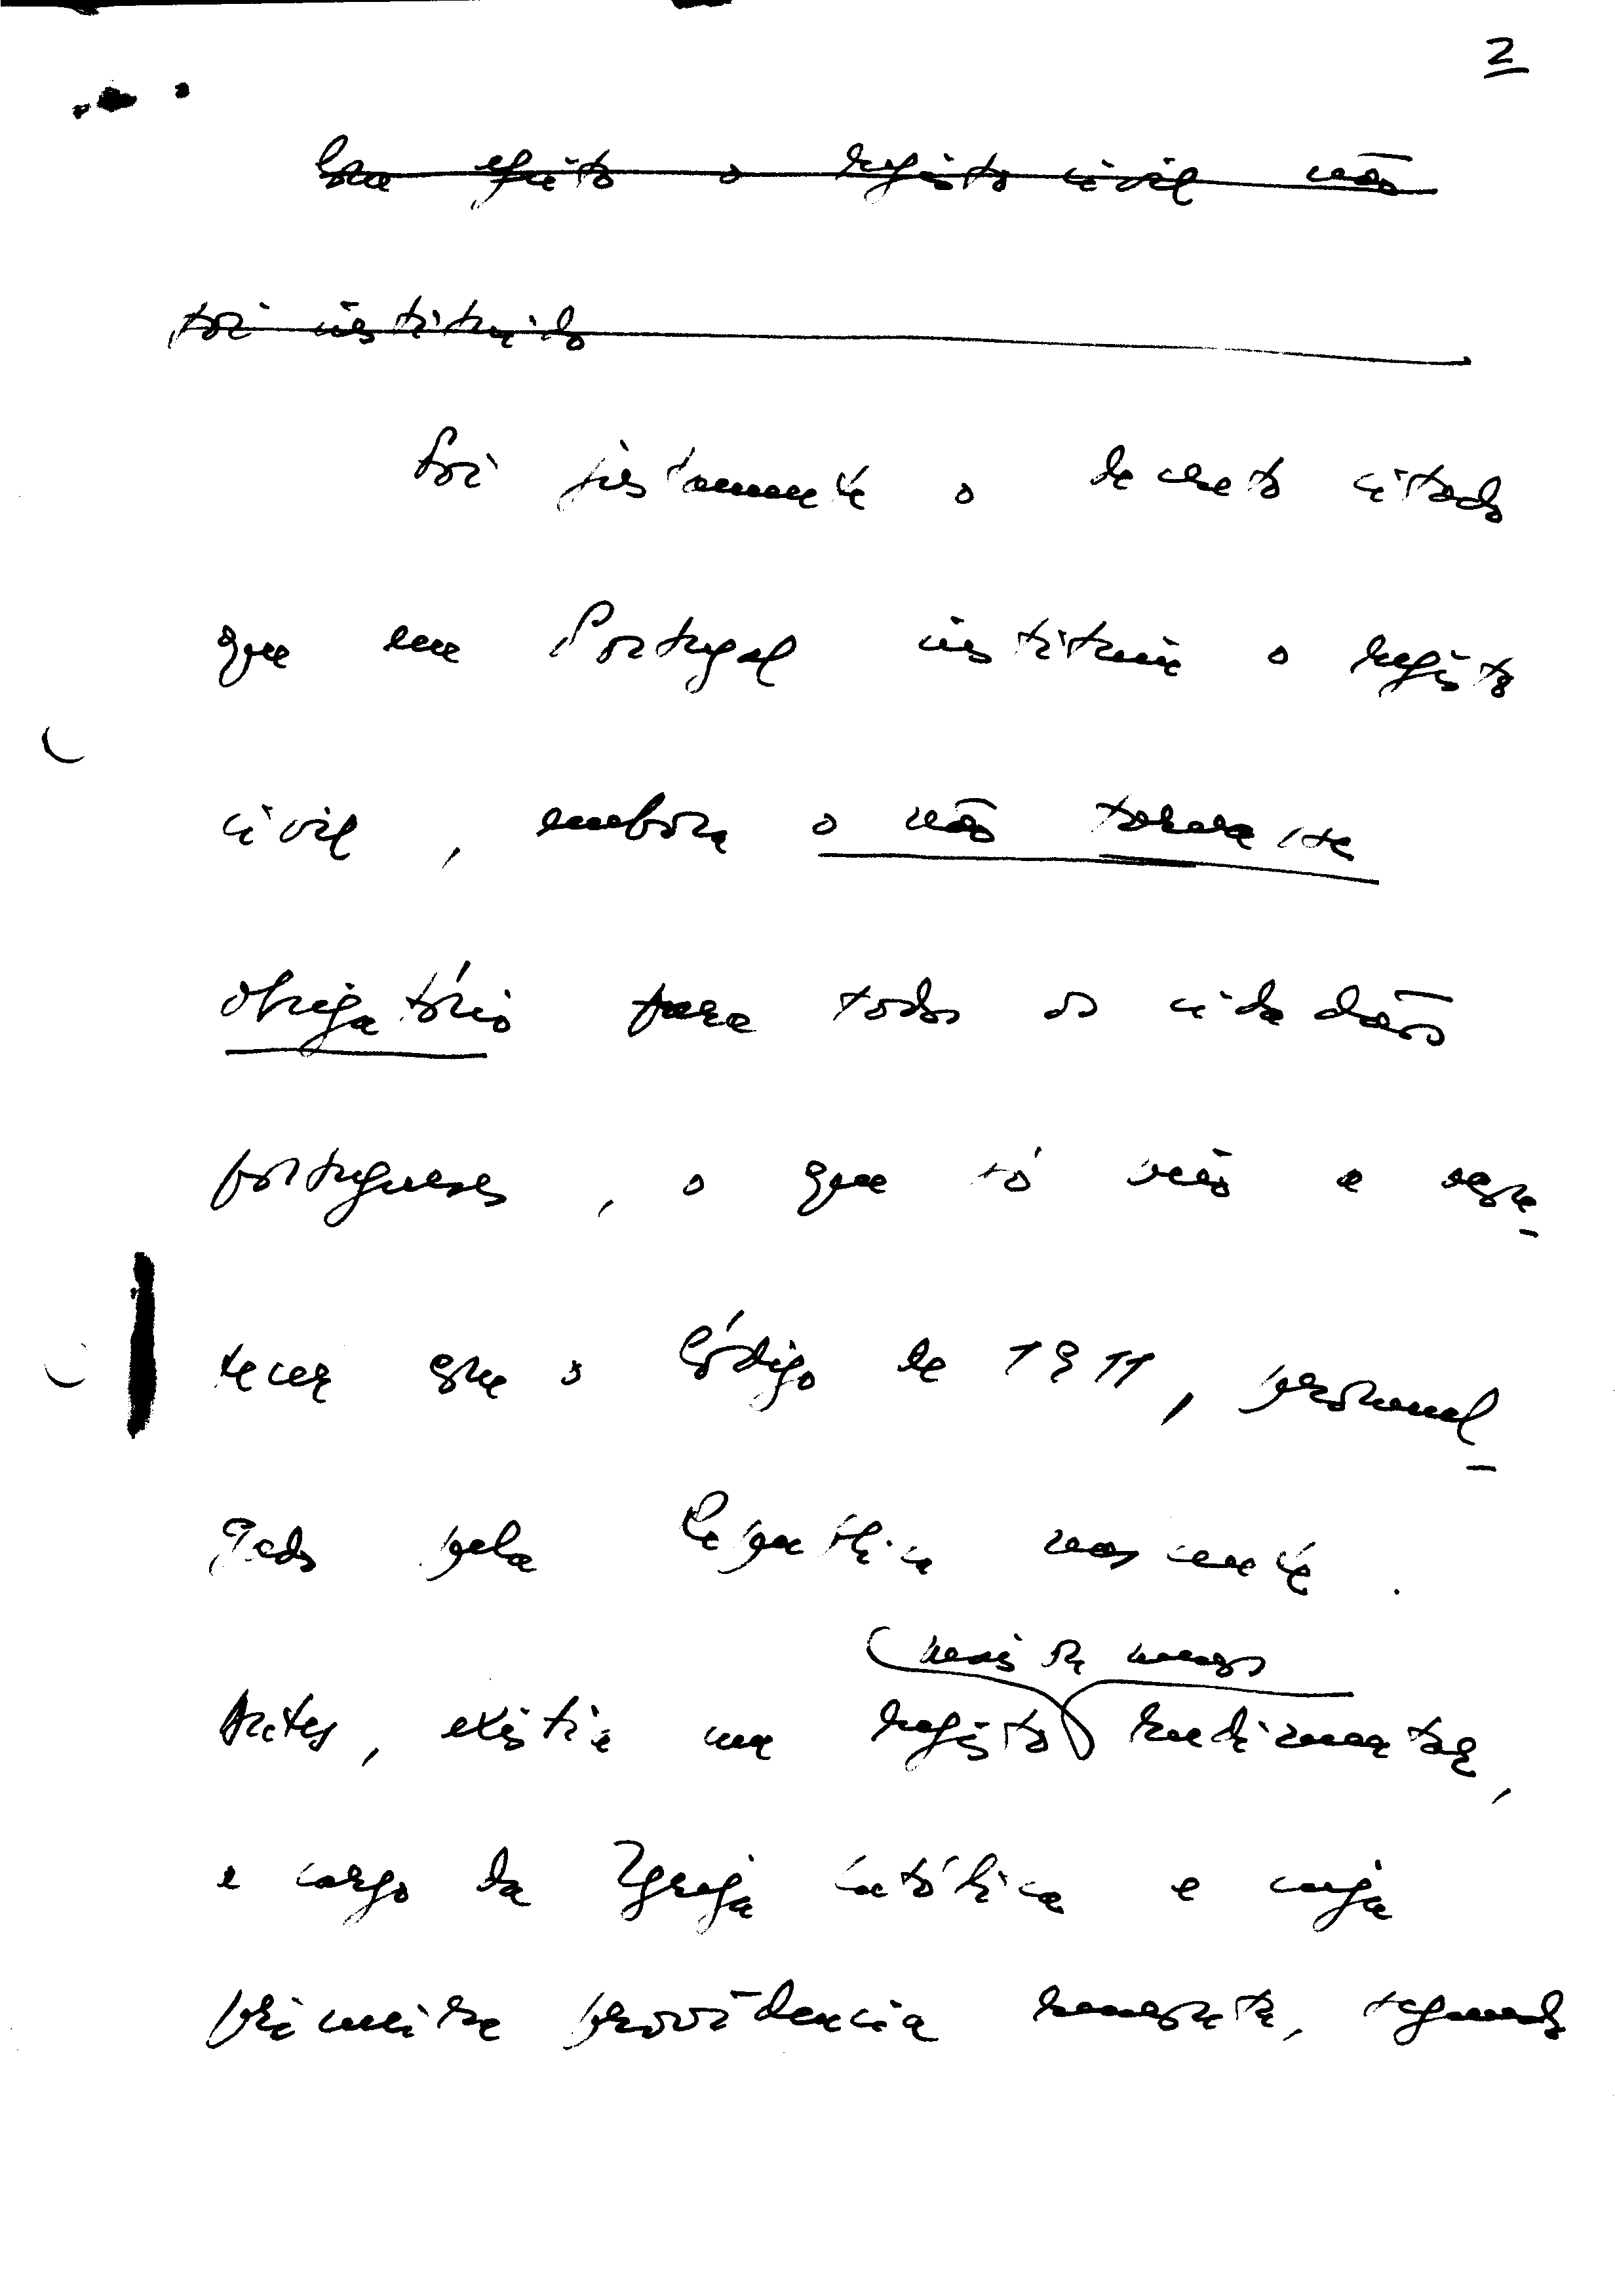 2
Com efeito o registo civil não
foi instituido
Foi justamente o decreto citado
que em Portugal instituiu o registo
civil, embora o não tornasse
obrigatório para todos os cidadãos
portugueses, o que só veio a acon-
tecer com o Código de 1911, promul-
gado pela República nascente.
mais ou menos
Antes, existia um registo rudimentar,
a cargo da Igreja Católica e cuja
primeira providência remonta, segundo